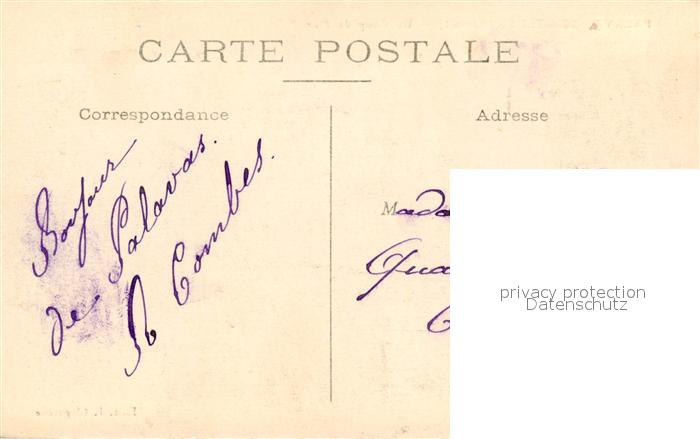 CARTE POSTALE
Correspondance
Adresse
Bonjour
de Palavas.
R Combes.
Mada
Quai
privacy protection
Datenschutz